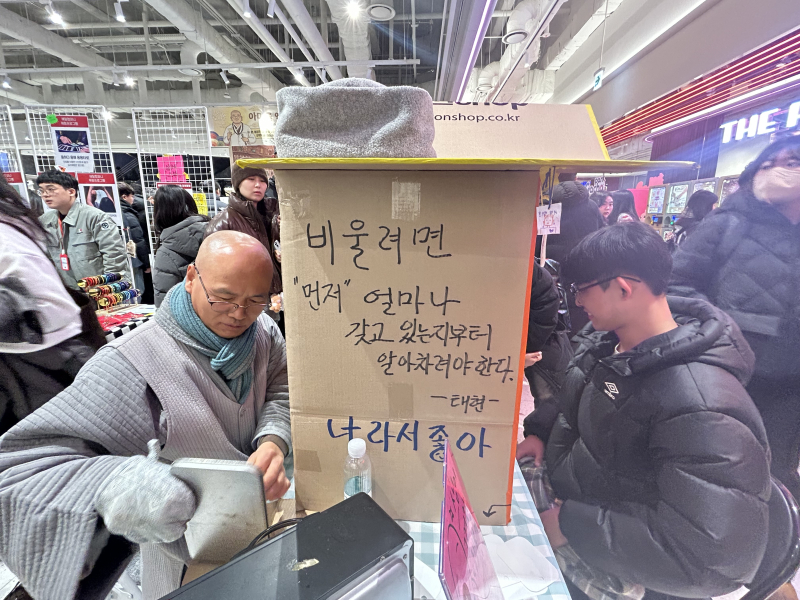 onshop.co.kr
비울려면
"먼저" 얼마나
갖고 있는지부터
알아차려야한다.
-태현-
나라서좋아
THE H